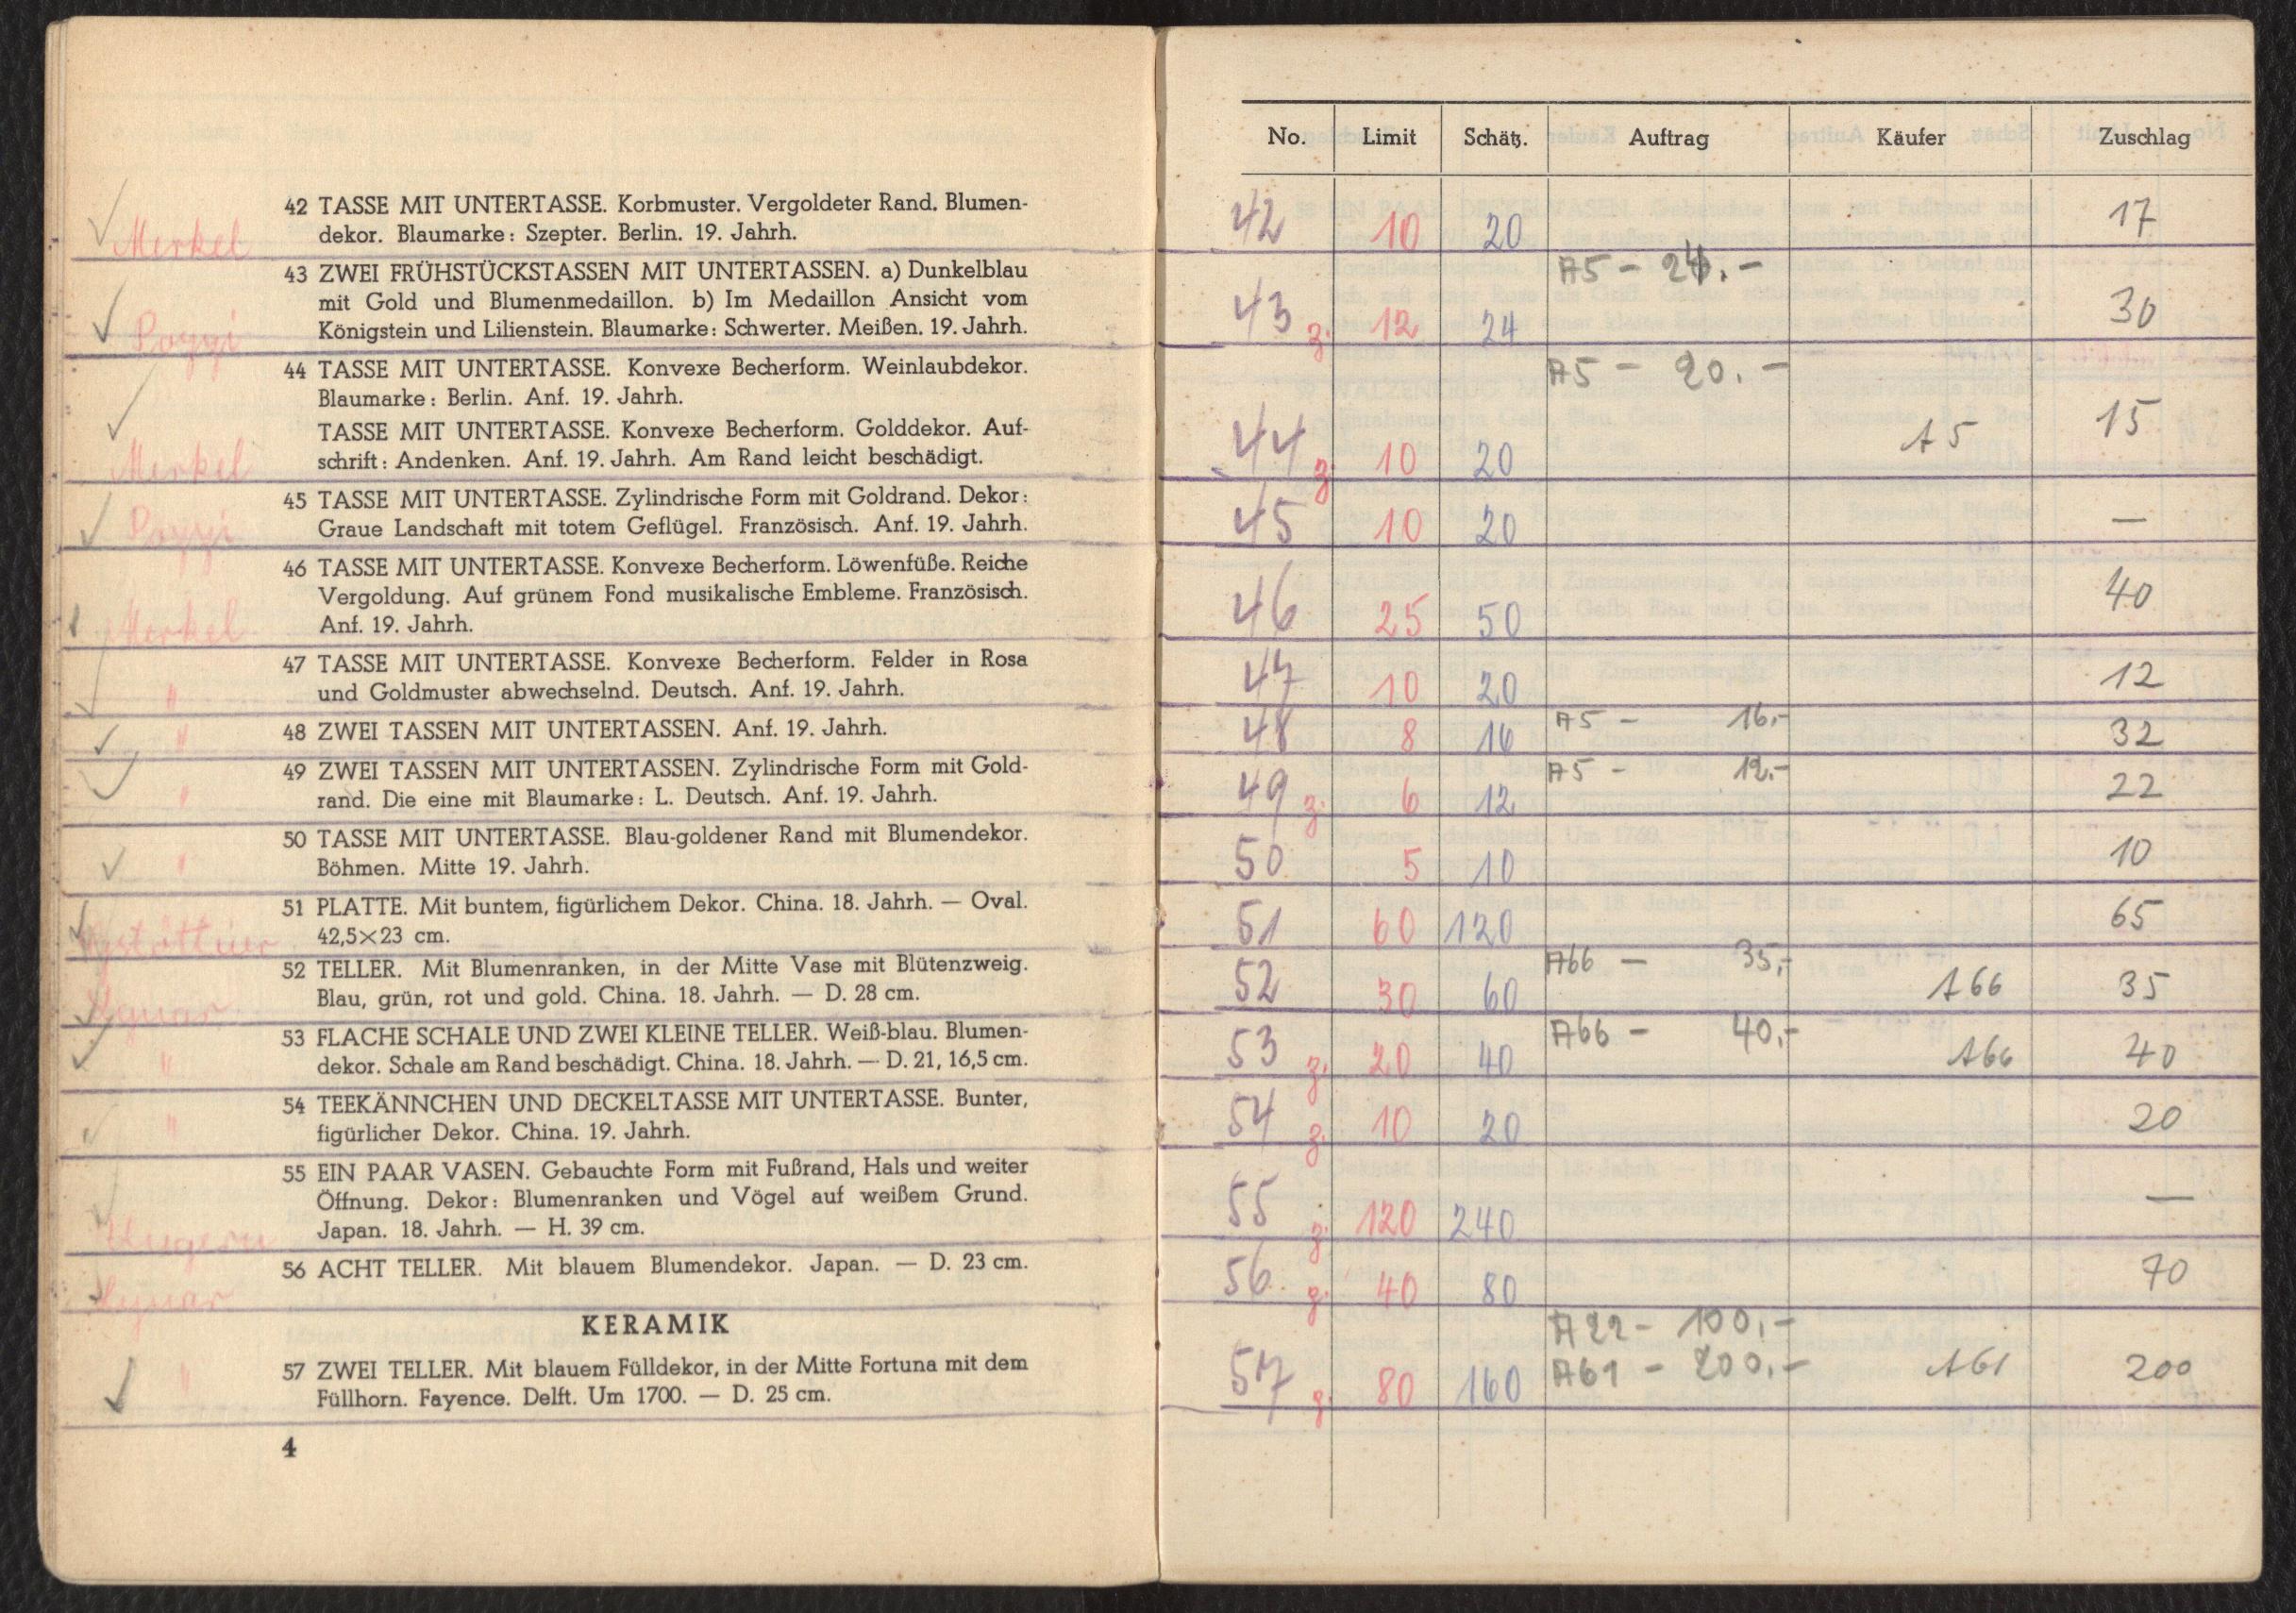 42 TASSE MIT UNTERTASSE. Korbmuster. Vergoldeter Rand. Blumen-
dekor. Blaumarke: Szepter. Berlin. 19. Jahrh.
Merkel
43 ZWEI FRÜHSTÜCKSTASSEN MIT UNTERTASSEN. a) Dunkelblau
mit Gold und Blumenmedaillon. b) Im Medaillon Ansicht vom
Königstein und Lilienstein. Blaumarke: Schwerter. Meißen. 19. Jahrh.
Poggi
44 TASSE MIT UNTERTASSE. Konvexe Becherform. Weinlaubdekor.
Blaumarke: Berlin. Anf. 19. Jahrh.
TASSE MIT UNTERTASSE. Konvexe Becherform. Golddekor. Auf-
schrift: Andenken. Anf. 19. Jahrh. Am Rand leicht beschädigt.
Merkel
45 TASSE MIT UNTERTASSE. Zylindrische Form mit Goldrand. Dekor:
Poggi Graue Landschaft mit totem Geflügel. Französisch. Anf. 19. Jahrh.
46 TASSE MIT UNTERTASSE. Konvexe Becherform. Löwenfüße. Reiche
Vergoldung. Auf grünem Fond musikalische Embleme. Französisch.
Merkel Anf. 19. Jahrh.
47 TASSE MIT UNTERTASSE. Konvexe Becherform. Felder in Rosa
" und Goldmuster abwechselnd. Deutsch. Anf. 19. Jahrh.
" 48 ZWEI TASSEN MIT UNTERTASSEN. Anf. 19. Jahrh.
49 ZWEI TASSEN MIT UNTERTASSEN. Zylindrische Form mit Gold-
" rand. Die eine mit Blaumarke: L. Deutsch. Anf. 19. Jahrh.
50 TASSE MIT UNTERTASSE. Blau-goldener Rand mit Blumendekor.
" Böhmen. Mitte 19. Jahrh.
51 PLATTE. Mit buntem, figürlichem Dekor. China. 18. Jahrh. — Oval.
42,5×23 cm.
52 TELLER. Mit Blumenranken, in der Mitte Vase mit Blütenzweig.
Blau, grün, rot und gold. China. 18. Jahrh. — D. 28 cm.
53 FLACHE SCHALE UND ZWEI KLEINE TELLER. Weiß-blau. Blumen-
" dekor. Schale am Rand beschädigt. China. 18. Jahrh. — D. 21, 16,5 cm.
54 TEEKÄNNCHEN UND DECKELTASSE MIT UNTERTASSE. Bunter,
" figürlicher Dekor. China. 19. Jahrh.
55 EIN PAAR VASEN. Gebauchte Form mit Fußrand, Hals und weiter
Öffnung. Dekor: Blumenranken und Vögel auf weißem Grund.
Japan. 18. Jahrh. — H. 39 cm.
56 ACHT TELLER. Mit blauem Blumendekor. Japan. — D. 23 cm.
KERAMIK
57 ZWEI TELLER. Mit blauem Fülldekor, in der Mitte Fortuna mit dem
" Füllhorn. Fayence. Delft. Um 1700. — D. 25 cm.
4
No. Limit Schätz. Auftrag Käufer Zuschlag
42 10 20 17
A5 - 24.-
43 z. 12 24 30
A5 - 20.-
44 z. 10 20 A5 15
45 10 20 —
46 25 50 40
47 10 20 12
48 8 16 A5 - 16.- 32
49 z. 6 12 A5 - 12.- 22
50 5 10 10
51 60 120 65
52 30 60 A66 - 35,- A66 35
53 z. 20 40 A66 - 40,- A66 40
54 z. 10 20 20
55 z. 120 240 —
56 z. 40 80 70
A22 - 100,-
57 z. 80 160 A61 - 200,- A61 200